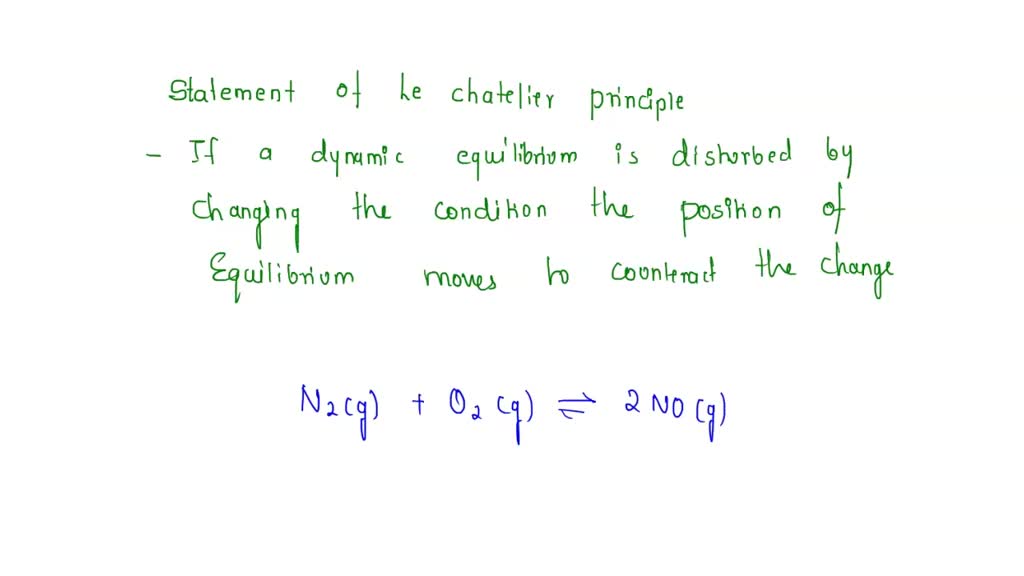 Statement of Le chatelier principle
- If a dynamic equilibrium is disturbed by
changing the condition the position of
Equilibrium moves to counteract the change
N₂(g) + O₂(g) ⇌ 2NO(g)